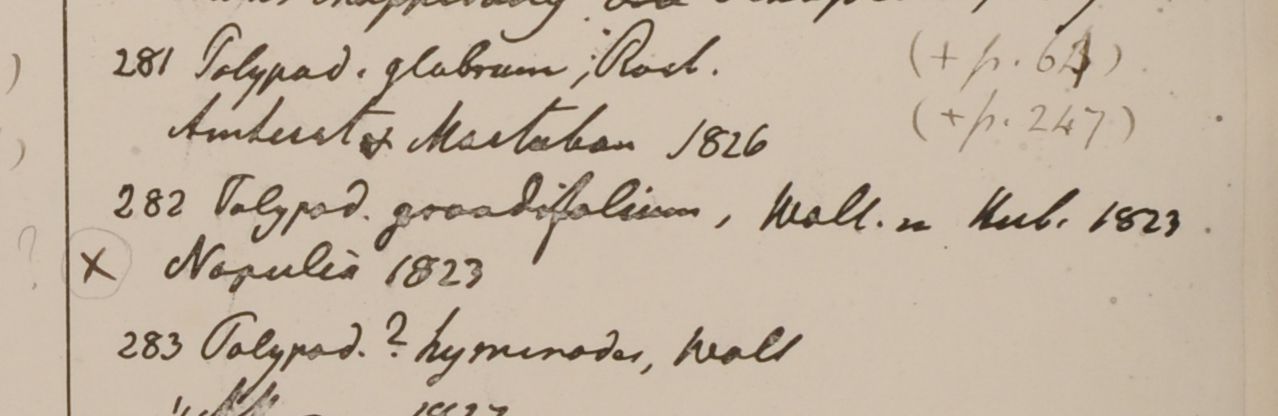 281 Polypod. glabrum, Roxb. (+ p. 64)
Amherst & Martaban 1826 (+ p. 247)
282 Polypod. grandifolium, Wall. in Herb. 1823
X Napalia 1823
283 Polypod. ? hymenodes, Wall